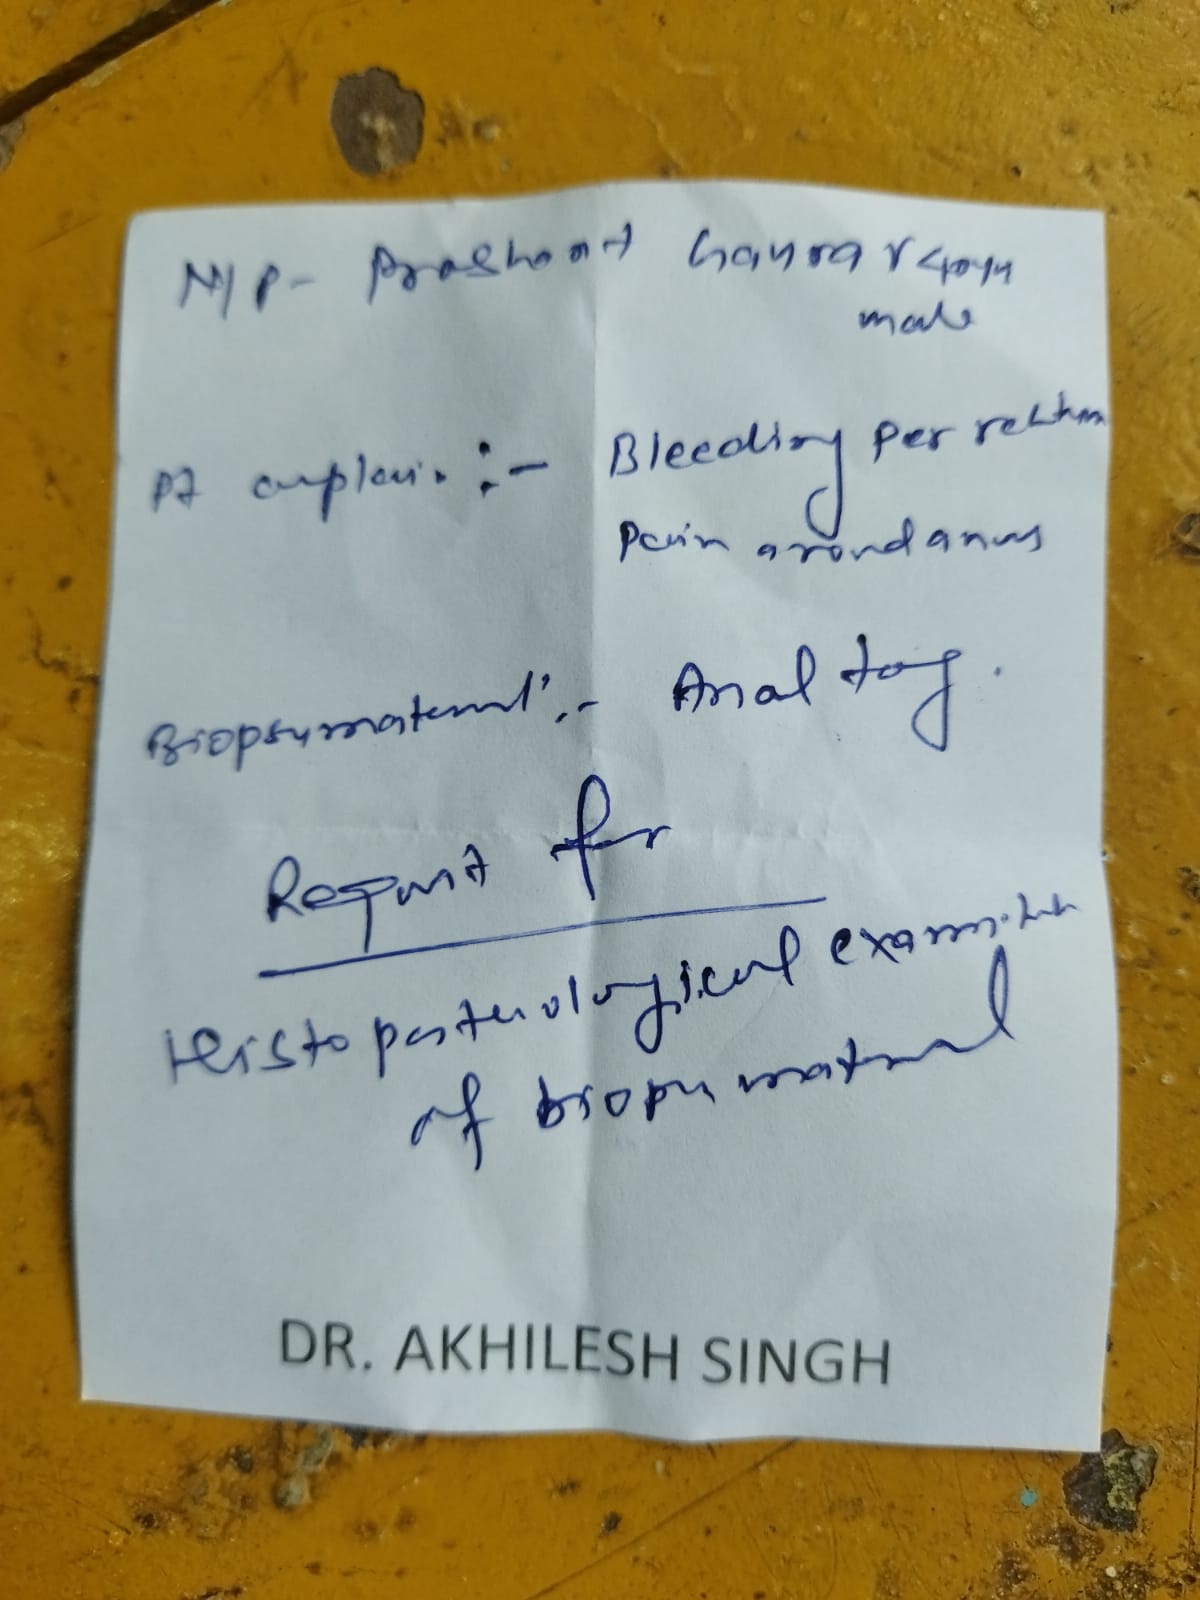 N/P- Prashant
male
Pt :- Bleeding Per rectum
Pain around anus
Biopsy material :- Anal tag.
Request for
Histopathological examination
of biopsy material
DR. AKHILESH SINGH